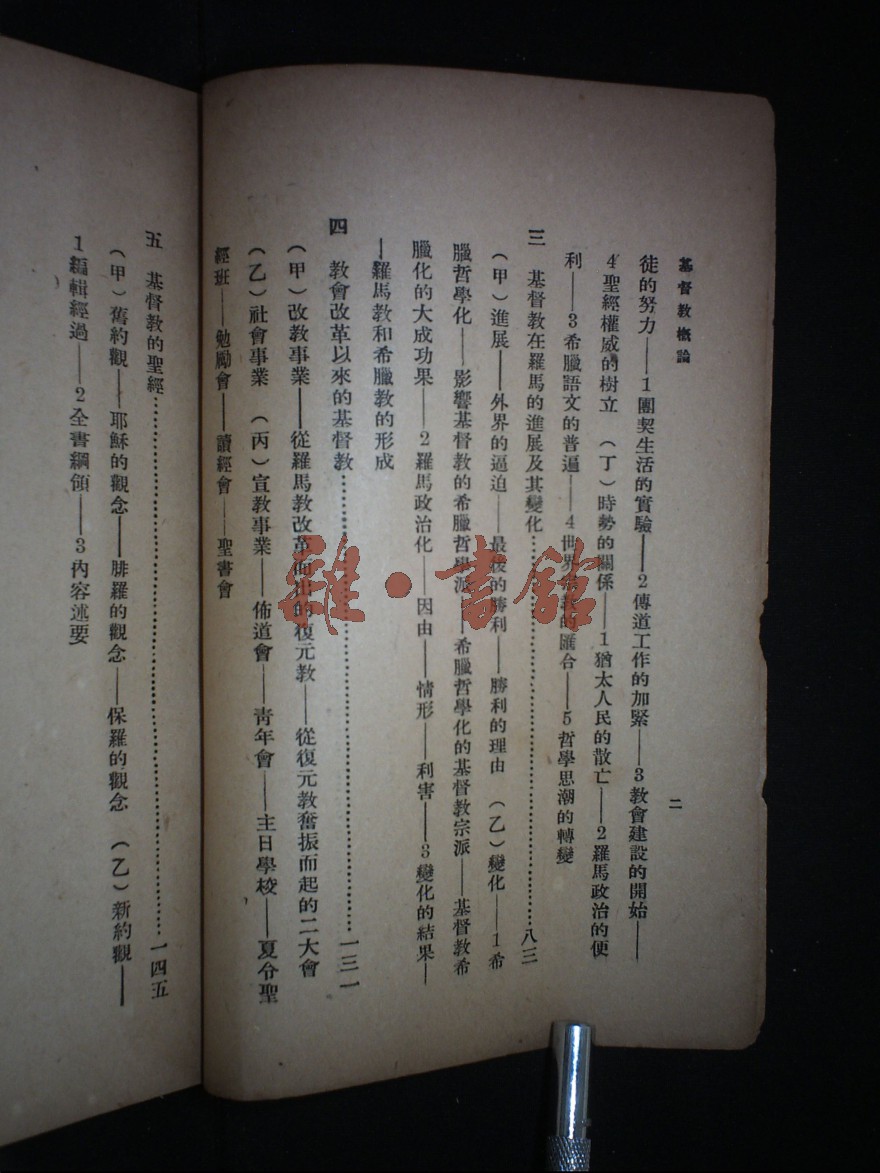 基督教概論
二
徒的努力——1團契生活的實驗——2傳道工作的加緊——3教會建設的開始——
4聖經權威的樹立　（丁）時勢的關係——1猶太人民的散亡——2羅馬政治的便
利——3希臘語文的普遍——4世界宗教的匯合——5哲學思潮的轉變
三　基督教在羅馬的進展及其變化……八三
（甲）進展——外界的逼迫——最後的勝利——勝利的理由　（乙）變化——1希
臘哲學化——影響基督教的希臘哲學派——希臘哲學化的基督教宗派——基督教希
臘化的大成功果——2羅馬政治化——因由——情形——利害——3變化的結果—
—羅馬教和希臘教的形成
四　教會改革以來的基督教……一三一
（甲）改教事業——從羅馬教改革而出的復元教——從復元教奮振而起的二大會
（乙）社會事業　（丙）宣教事業——佈道會——青年會——主日學校——夏令聖
經班——勉勵會——讀經會——聖書會
五　基督教的聖經……一四五
（甲）舊約觀——耶穌的觀念——腓羅的觀念——保羅的觀念　（乙）新約觀——
1編輯經過——2全書綱領——3內容述要
雜·書館